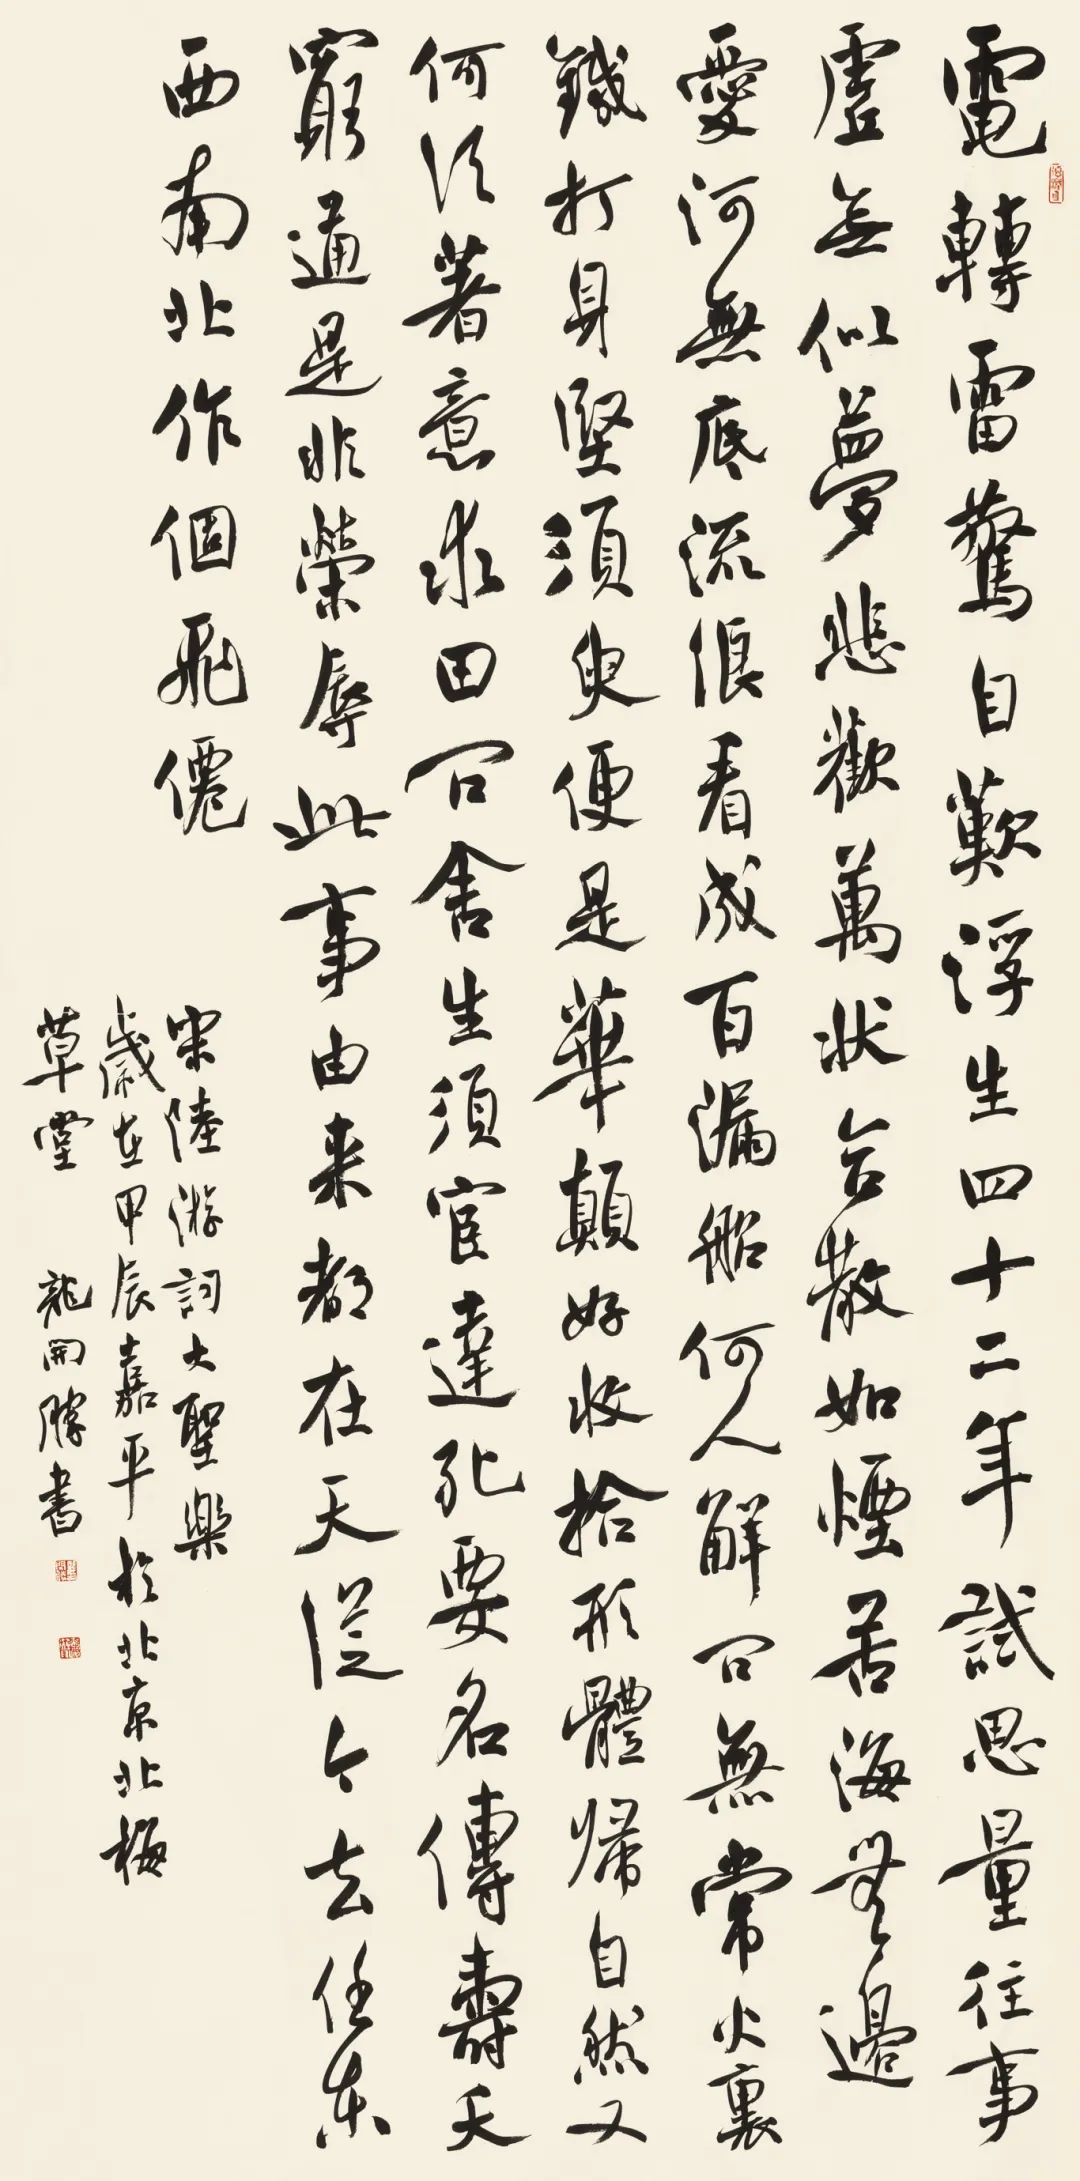 電轉雷驚自歎浮生四十二年試思量往事
虛無似夢悲歡萬狀合散如煙苦海無邊
愛河無底流浪看成百漏船何人解問無常火裏
鐵打身堅須臾便是華顛好收拾形體歸自然又
何須著意求田問舍生須宦達死要名傳壽夭
窮通是非榮辱此事由来都在天從今去任東
西南北作個飛僊
宋陸游詞大聖樂
歲在甲辰嘉平於北京北梅
草堂 龍開勝書